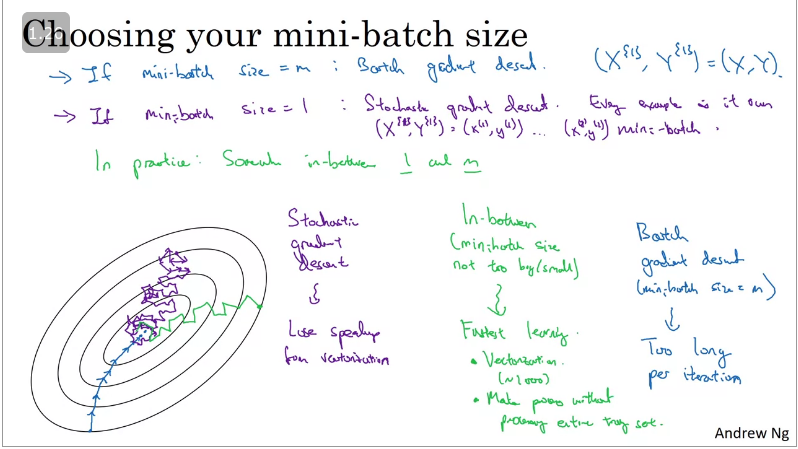 1.26
Choosing your mini-batch size
→ If mini-batch size = m : Batch gradient descent. (X^{1}, Y^{1}) = (X, Y).
→ If mini-batch size = 1 : Stochastic gradient descent. Every example is it own
(X^{1}, Y^{1}) = (x^(1), y^(1)) ... (x^(2), y^(2)) mini-batch.
In practice: Somewhere in-between 1 and m
Stochastic
gradient
descent
Lose speedup
from vectorization
In-between
(mini-batch size
not too big/small)
Fastest learning.
• Vectorization.
(~1000)
• Make progress without
processing entire training set.
Batch
gradient descent
(mini-batch size = m)
Too long
per iteration
Andrew Ng